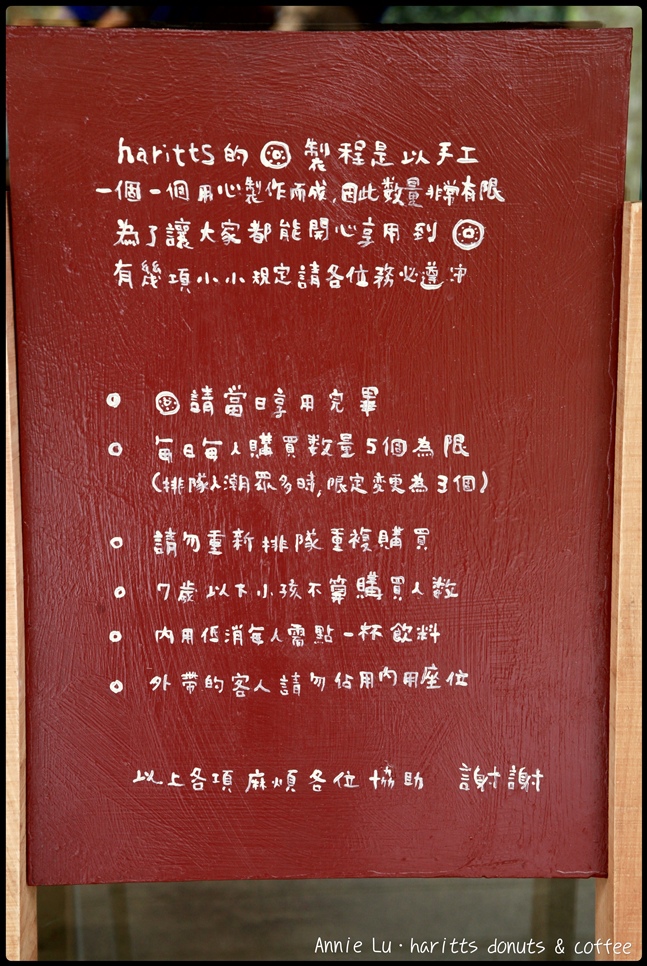 haritts的 製程是以手工
一個一個用心製作而成,因此數量非常有限
為了讓大家都能開心享用到
有幾項小小規定請各位務必遵守
請當日享用完畢
每日每人購買數量5個為限
(排隊人潮眾多時,限定變更為3個)
請勿重新排隊重複購買
7歲以下小孩不算購買人數
內用低消每人需點一杯飲料
外帶的客人請勿佔用內用座位
以上各項麻煩各位協助 謝謝
Annie Lu · haritts donuts & coffee